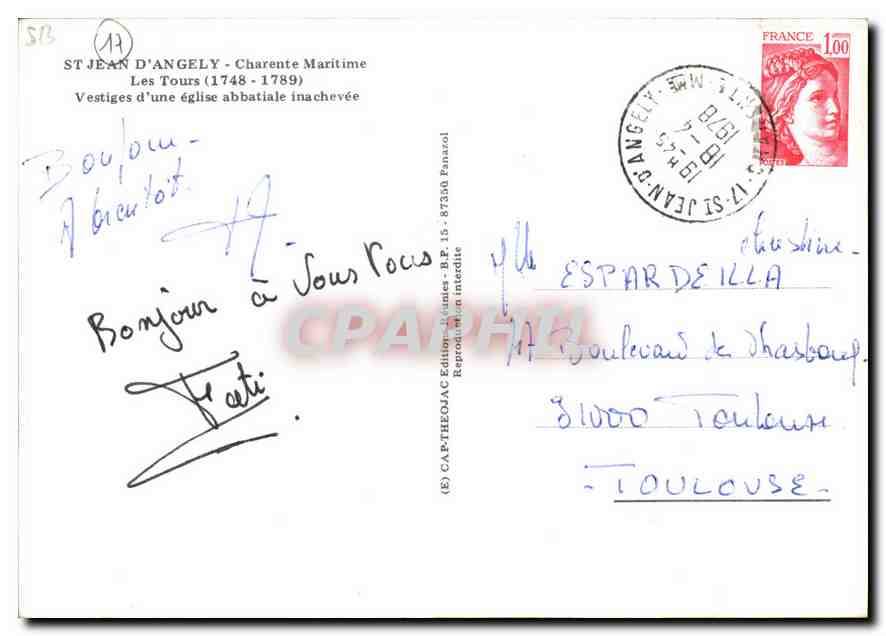 SB
17
ST JEAN D'ANGELY - Charente Maritime
Les Tours (1748 - 1789)
Vestiges d'une église abbatiale inachevée
Bonjour -
A bientôt.
Bonjour à Vous Vous
Fati
(E) CAP-THEOJAC Editions Réunies - B.P. 15 - 87350 Panazol
Reproduction interdite
CPARPHIL
FRANCE 1,00
17 - ST JEAN-D'ANGELY
19 H -45
18 - 4
1978
Mlle Christine -
ESPARDEILLA
Boulevard de Strasbourg
31000 Toulouse
- TOULOUSE -